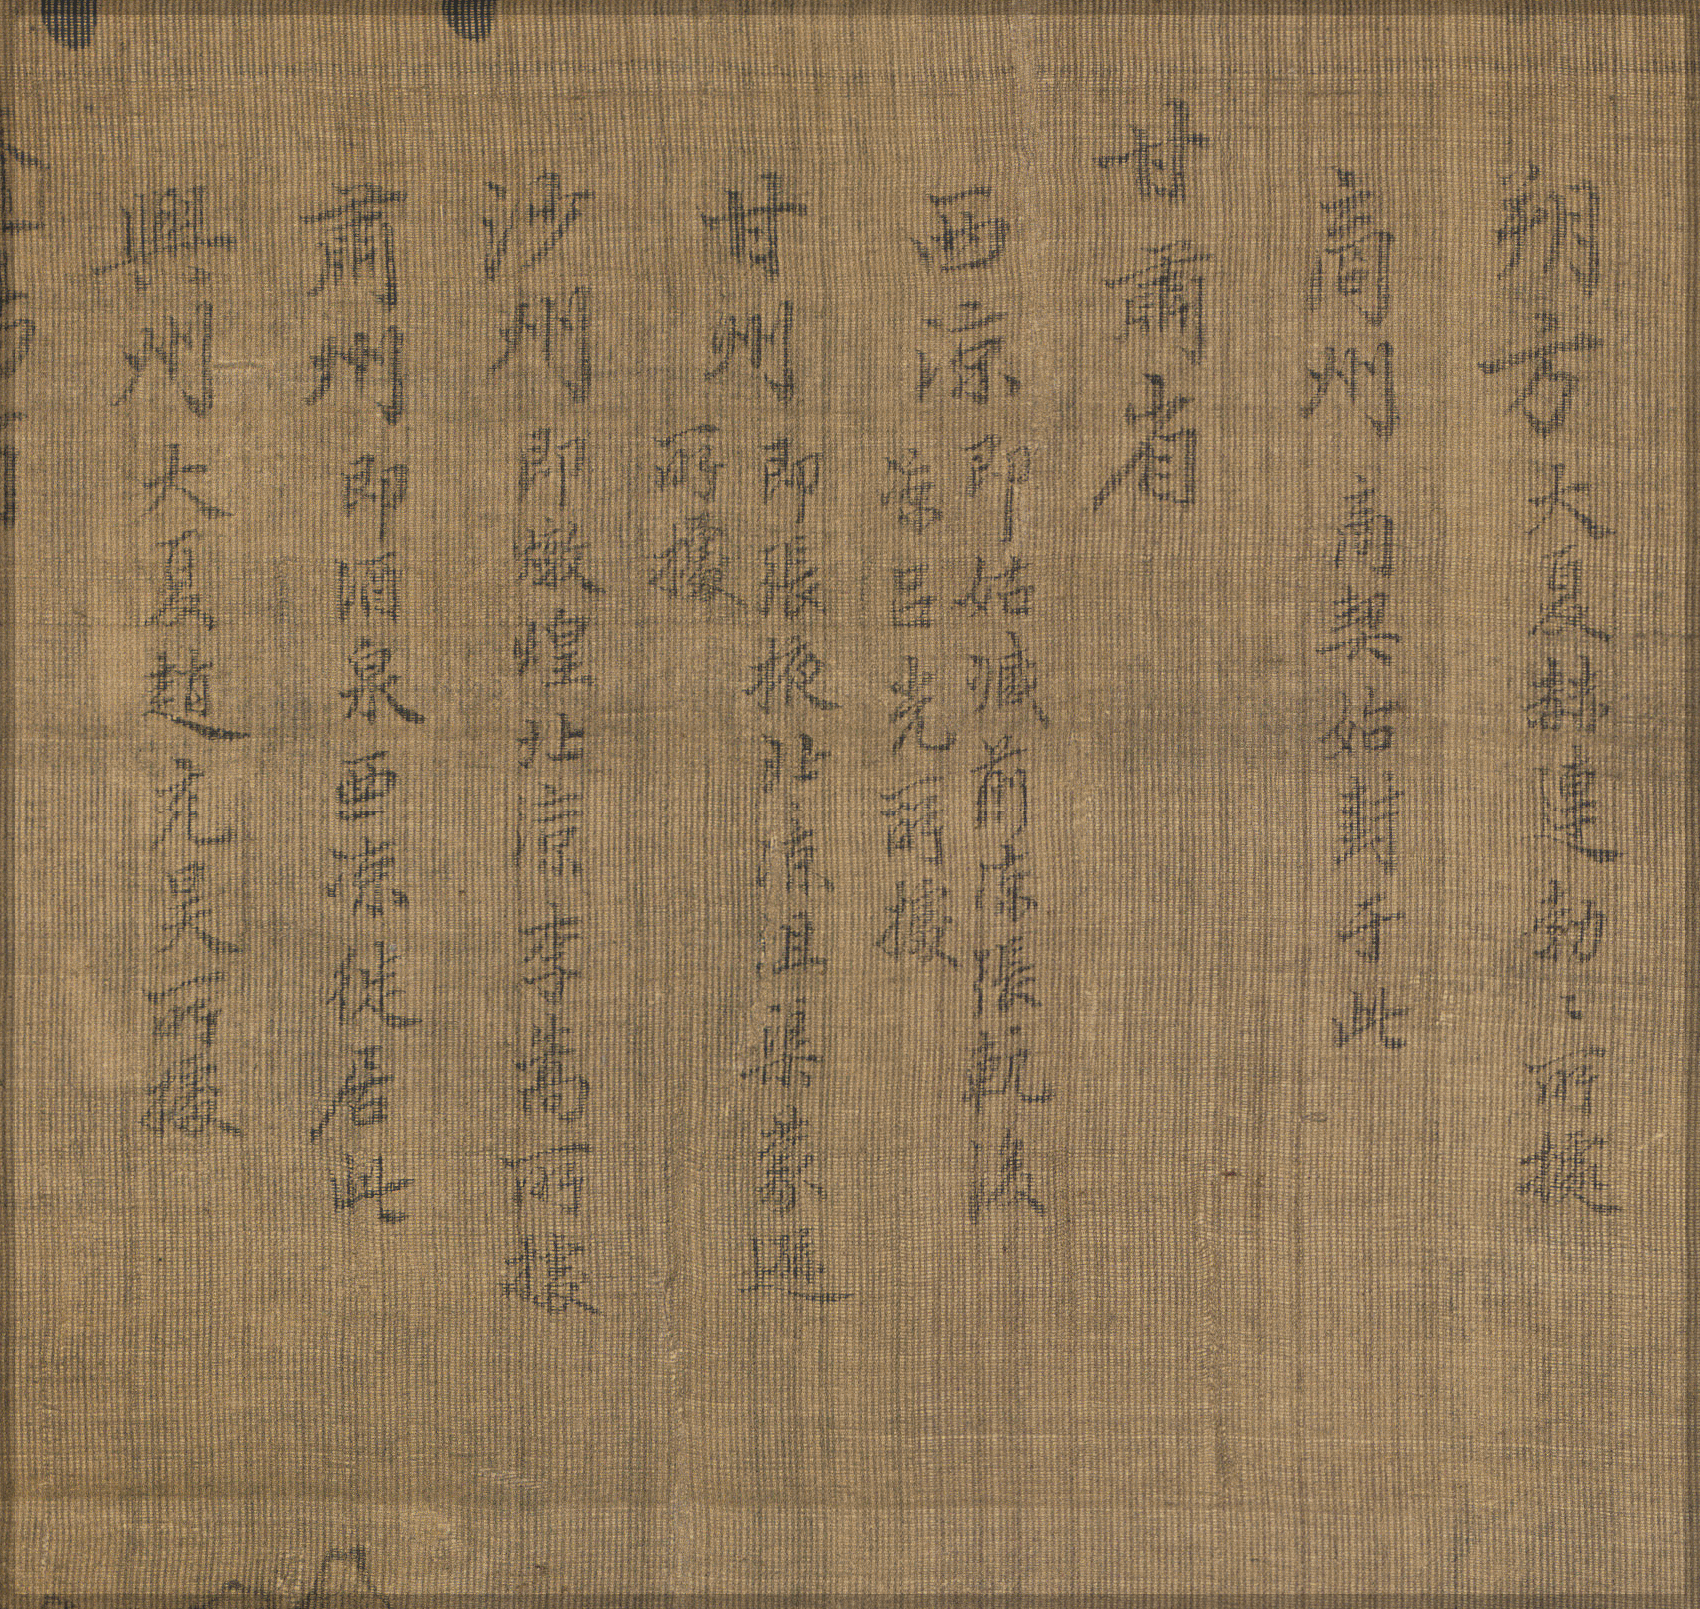 朔方大夏赫連勃〻所據
商州商契始封于此
甘肅省
西凉即姑臧前凉張軌後
凉呂光所據
甘州即張掖北凉沮渠蒙遜
所據
沙州即燉煌北凉李暠所據
肅州即酒泉西凉徙居此
興州大夏趙元昊所據